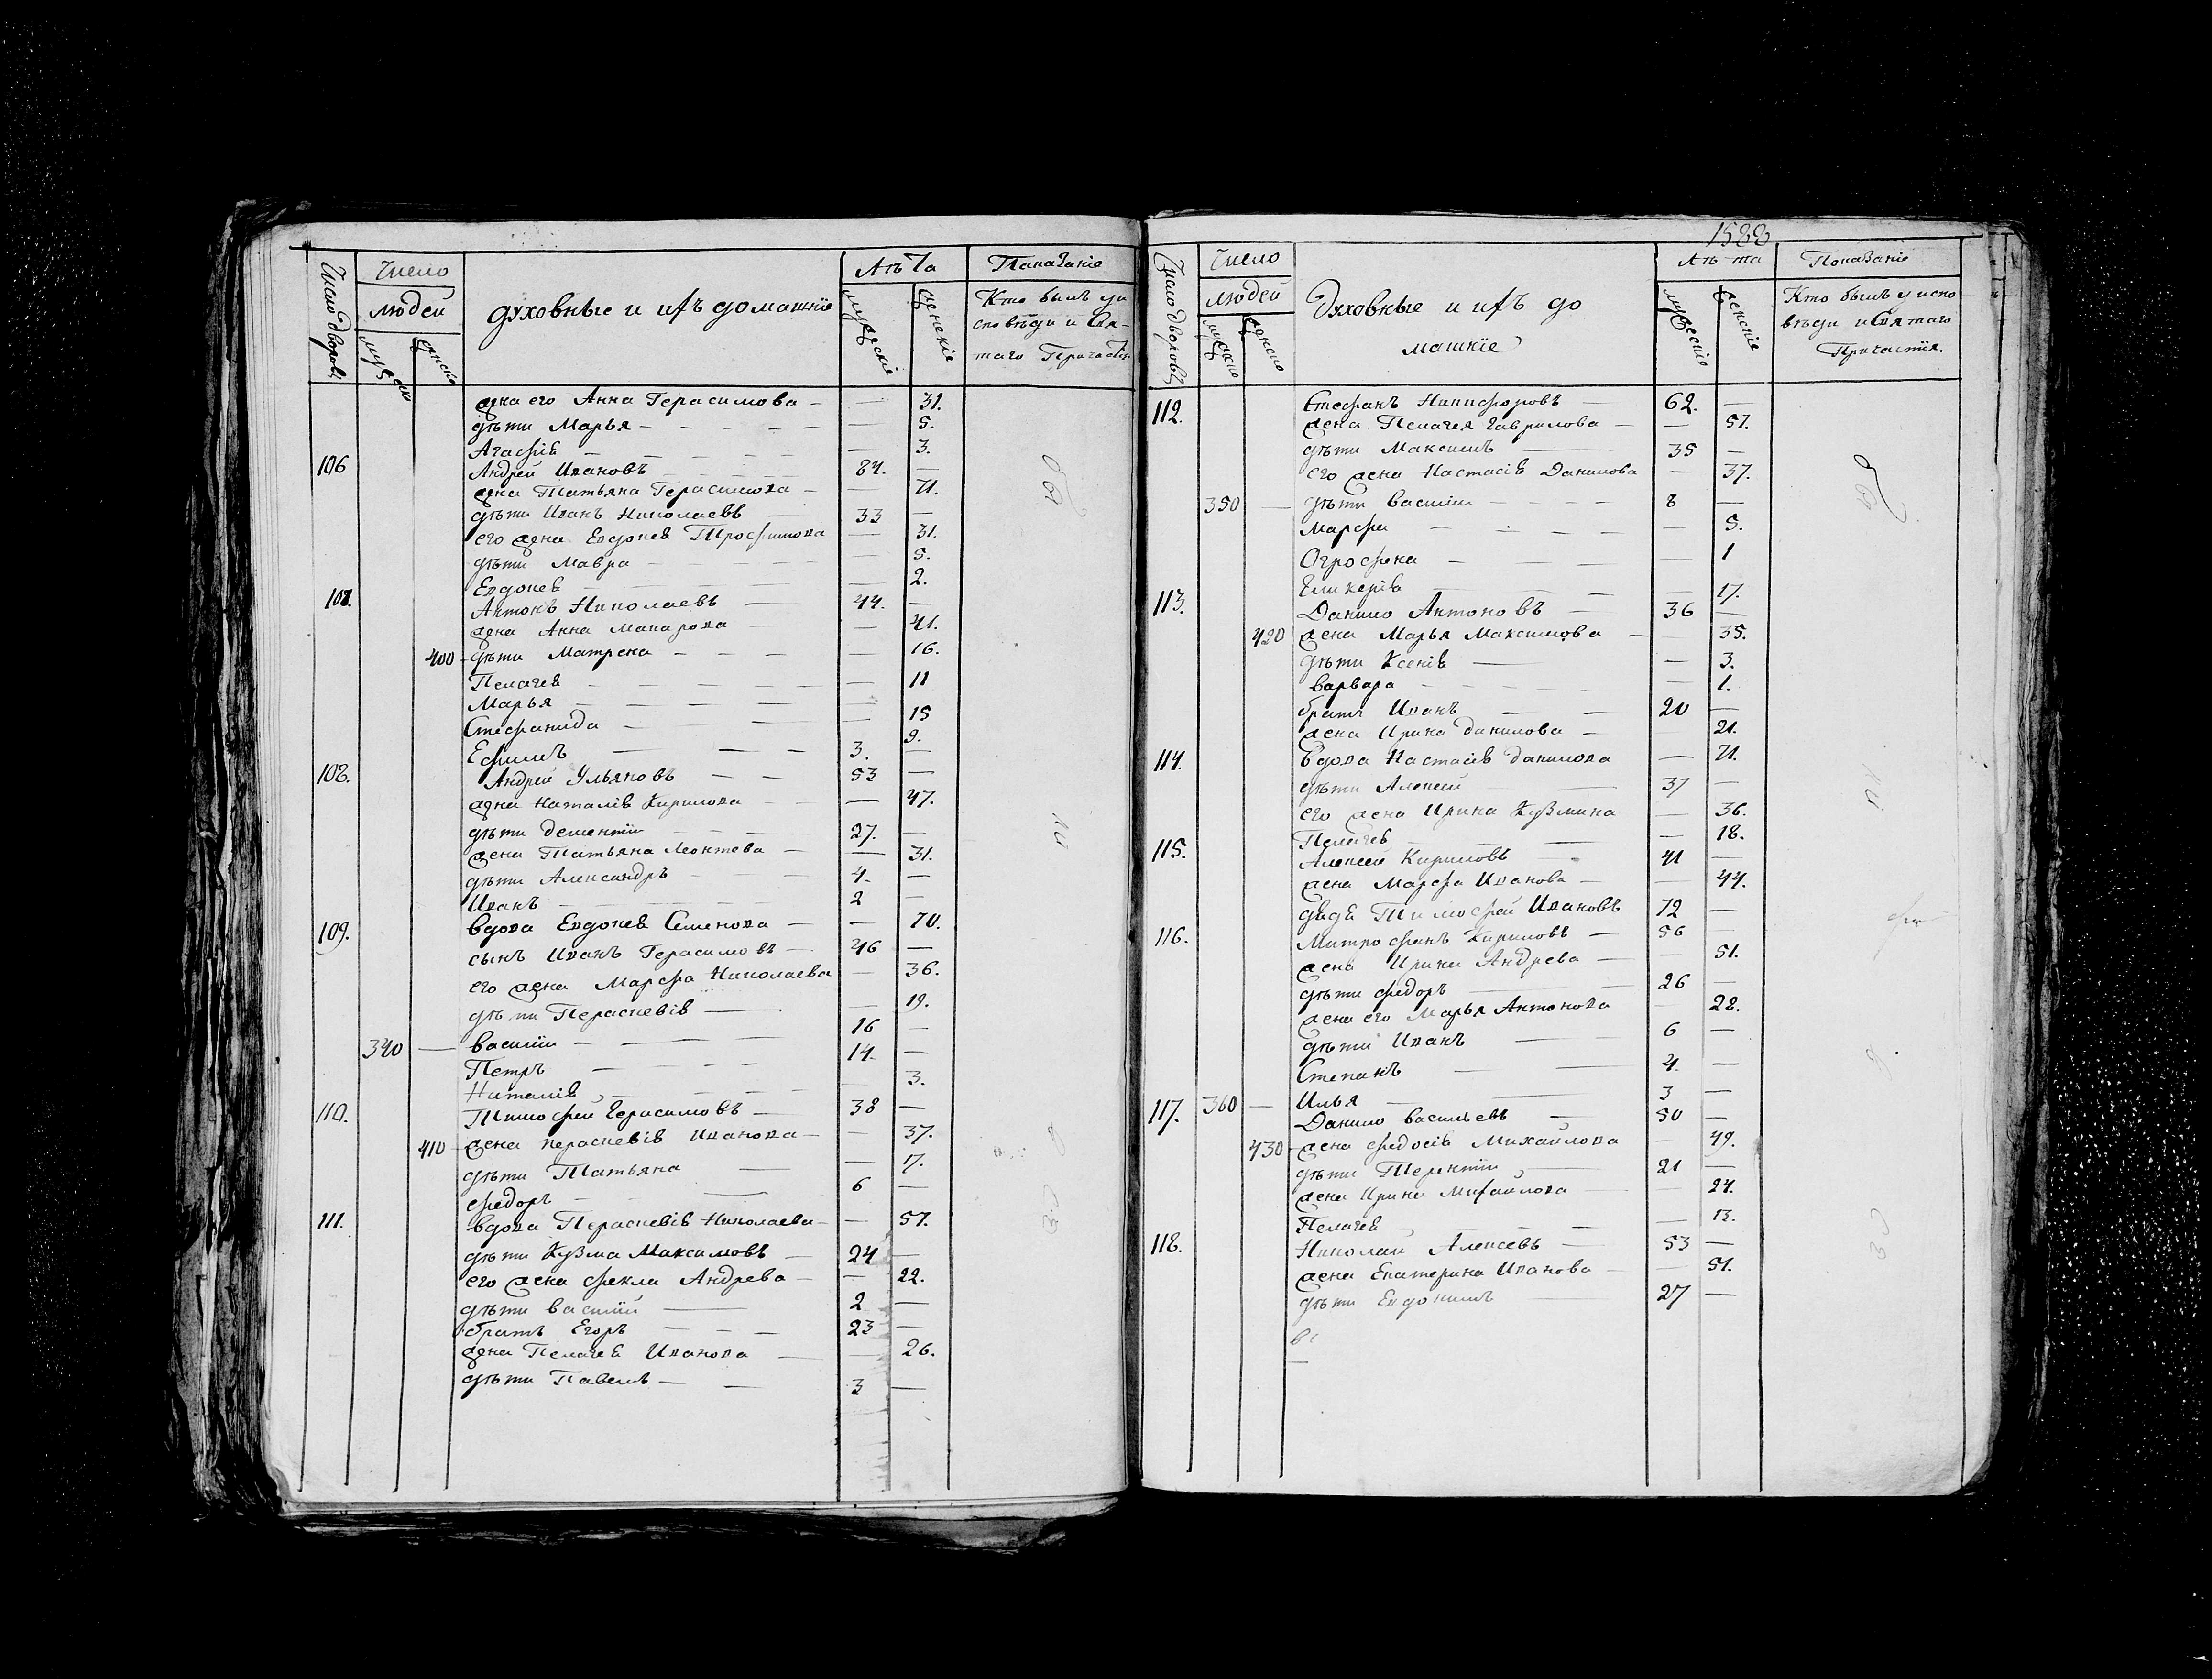 Число дворовъ
Число
людей
духовные и ихъ домашнїе
Лѣта
мужескїе
женскїе
Показанїе
Кто былъ у и
сповѣди и Свя-
таго Причастїя
жна его Анна Герасимова — — 31.
дѣти Марья — — 5.
Агафїѣ — — 3.
106 Андрей Ивановъ 84. —
жна Татьяна Герасимова — — 71.
дѣти Иванъ Николаевъ 33 —
его жена Евдокеѣ Трофимова — 31.
дѣти Мавра — — 5.
Евдокеѣ — — 2.
107. Антонъ Николаевъ — 44. —
жена Анна Макарова — — 41.
400 дѣти Матрена — — 16.
Пелагеѣ — — 11
Марья — — 15
Стефанида — — 9.
Ефимъ — 3. —
108. Андрей Ульяновъ — 53 —
жена Наталїѣ Кирилова — 47.
дѣти Дементїи 27. —
жена Татьяна Леонтева — — 31.
дѣти Александръ — 4. —
Иванъ — 2 —
109. вдова Евдокеѣ Семенова — — 70.
сынъ Иванъ Герасимовъ — 46 —
его жена Марфа Николаева — 36.
дѣти Пераскевїѣ — — 19.
16 —
340 — василїи — 14. —
Петръ —
Наталїѣ — — 3.
110. Тимофей Герасимовъ — 38 —
410 жена пераскевїѣ Иванова — — 37.
дѣти Татьяна — — 17.
федоръ — 6 —
111. вдова Пераскевїѣ Николаева — — 57.
дѣти Кузма Максимовъ — 24 —
его жена фекла Андрева — — 22.
дѣти василїй — 2 —
братъ Егоръ — 23 —
жена Пелагеѣ Иванова — — 26.
дѣти Павелъ — 3 —
1588
Число дворовъ
Число
людей
Духовные и ихъ до
машнїе
Лѣта
мужескїе
женскїе
Показанїе
Кто былъ у испо
вѣди и Святаго
Причастїя.
112. Стефанъ Никифоровъ — 62. —
жена Пелагея Гаврилова — — 57.
дѣти Максимъ — 35 —
его жена Настасїѣ Данилова — 37.
350 — дѣти василїи — 8 —
Марфа — — 5.
Огрофена — — 1
Гликерїѣ — — 17.
113. Данило Антоновъ — 36 —
420 жена Марья Максимова — — 35.
дѣти Ксенїѣ — — 3.
варвара — — 1.
братъ Иванъ — 20 —
жена Ирина данилова — — 21.
114. вдова Настасїѣ данилова — 71.
дѣти Алексей — 37 —
его жена Ирина Кузмина — 36.
Пелагеѣ — — 18.
115. Алексей Кириловъ — 41 —
жена Марфа Иванова — — 44.
дядѣ Тимофей Ивановъ 72 —
116. Митрофанъ Кириловъ — 56 —
жена Ирина Андрева — — 51.
дѣти федоръ — 26 —
жена его Марья Антонова — 28.
дѣти Иванъ — 6 —
Степанъ — 4. —
360 — Илья — 3 —
117. Данило васильевъ — 50 —
430 жена федосїѣ Михайлова — 49.
дѣти Терентїи — 21 —
жена Ирина Михайлова — — 24.
Пелагеѣ — — 13.
118. Николай Алексевъ — 53 —
жена Екатерина Иванова — — 51.
дѣти Евдокимъ — 27 —